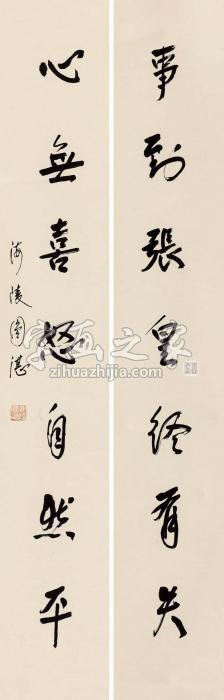 事到張皇終有失
心無喜怒自然平
海陵圓湛
字画之家
zihuazhijia.com